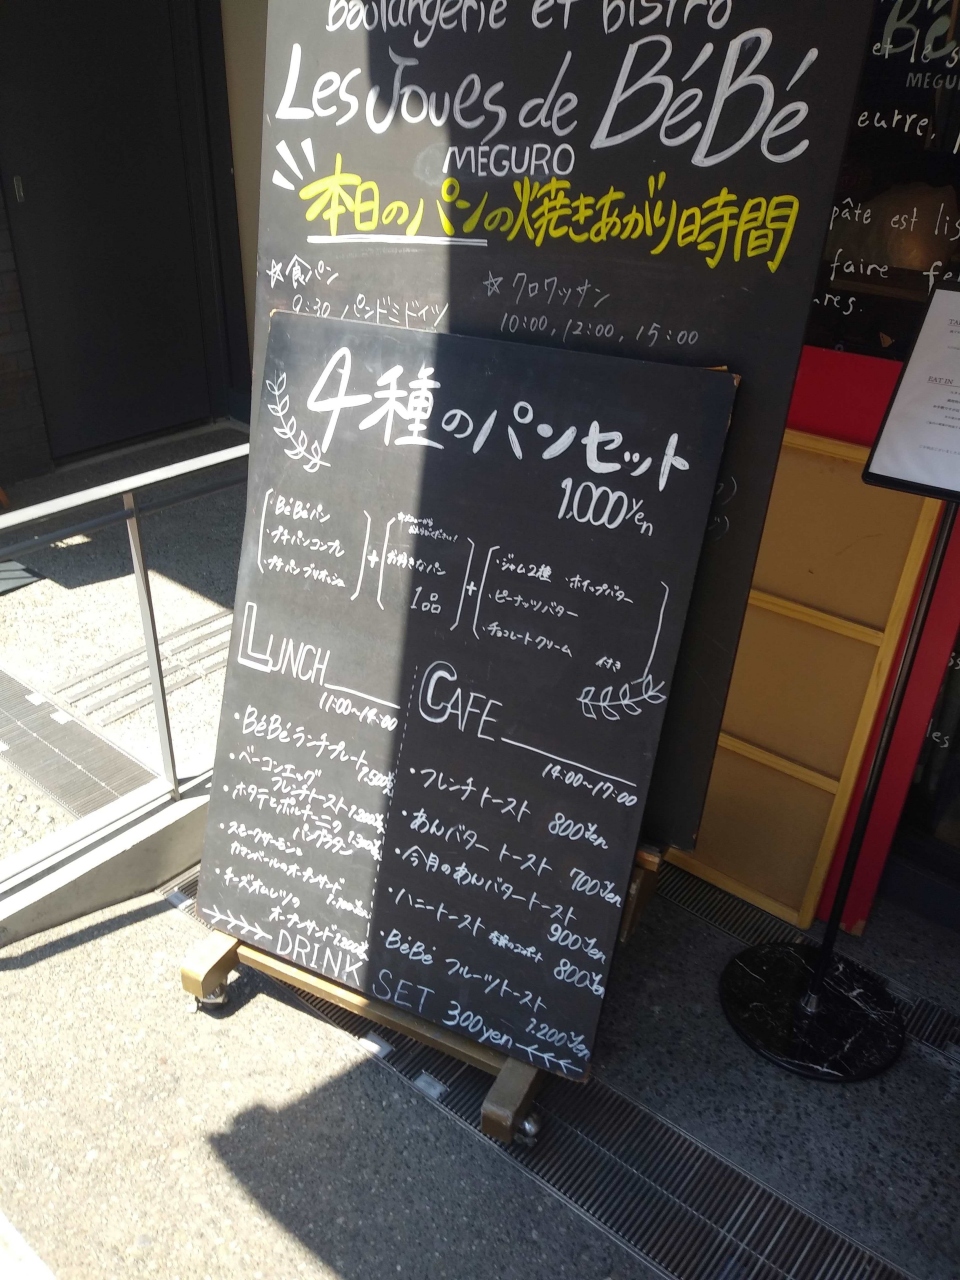 Boulangerie et bistro
Les Joues de BéBé
MEGURO
本日のパンの焼きあがり時間
☆食パン
9:30 パンドミドイツ
☆クロワッサン
10:00, 12:00, 15:00
4種のパンセット
1.000yen
・BéBéパン
・プチパンコンプレ
・プチパンブリオッシュ
+
お好きなパン
1品
+
・ジャム2種 ・ホイップバター
・ピーナッツバター
・チョコレートクリーム
付き
LUNCH
11:00~14:00
・BéBéランチプレート
1.500
・ベーコンエッグ
フレンチトースト 1.200
・ホタテとポルチーニの
パングラタン 1.300
・スモークサーモンと
カマンベールのオープンサンド
・チーズオムレツの
オープンサンド 1.200
CAFE
14:00~17:00
・フレンチトースト
800yen
・あんバタートースト
700yen
・今月のあんバタートースト
900yen
・ハニートースト
800yen
・BéBé フルーツトースト
1.200yen
DRINK SET 300yen
Bé
et le s
MEGU
eurre,
pâte est lis
faire fe
res.
EAT IN